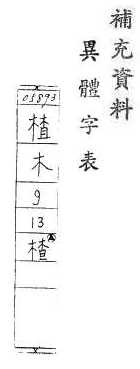 補充資料
異體字表
05893
楂
木
9
13
楂